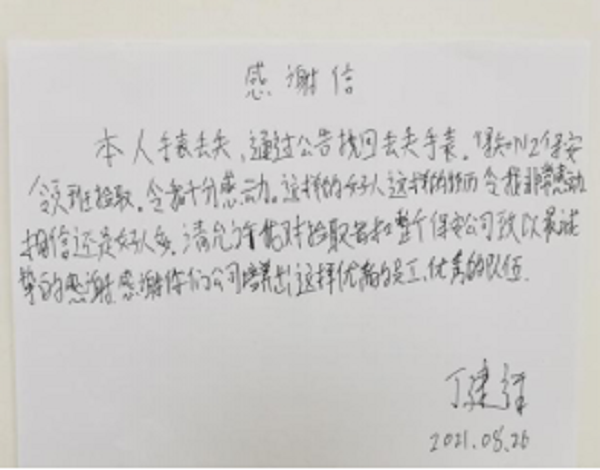 感谢信
本人手表丢失,通过公告找回丢失手表。得知N2保安
领班捡取。令我十分感动。这样的好人这样的好事令我非常感动
相信还是好人多,请允许我对捡取者和整个保安公司致以最诚
挚的感谢,感谢你们公司培养出这样优秀的员工、优秀的队伍.
丁建
2021.08.26